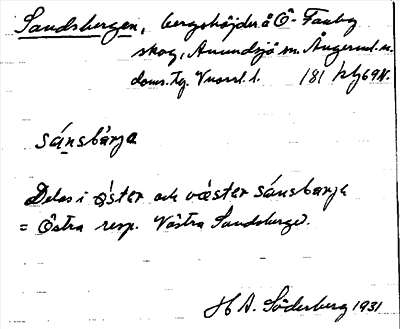 Sandsbergen, bergshöjder å Ö-Fanby
skog, Anundsjö sn. Ångerml. n.
doms. Tg. Vnorrl. l. 181
sánsbärja
Delas i öster och väster sánsbärja
= Östra resp. Västra Sandsberget.
H A. Söderberg 1931